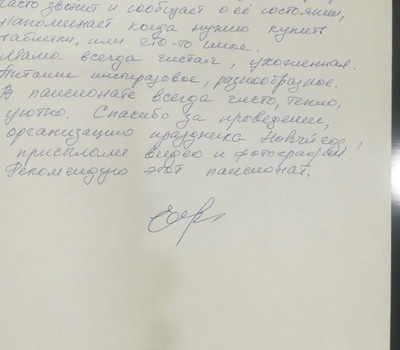 часто звонит и сообщает о её состоянии,
напоминает когда нужно купить
таблетки, или что-то иное.
Мама всегда чистая, ухоженная.
Питание шестиразовое, разнообразное.
В пансионате всегда чисто, тепло,
уютно. Спасибо за проведении,
организацию праздника Новый год,
присылали видео и фотографии
Рекомендую этот пансионат.